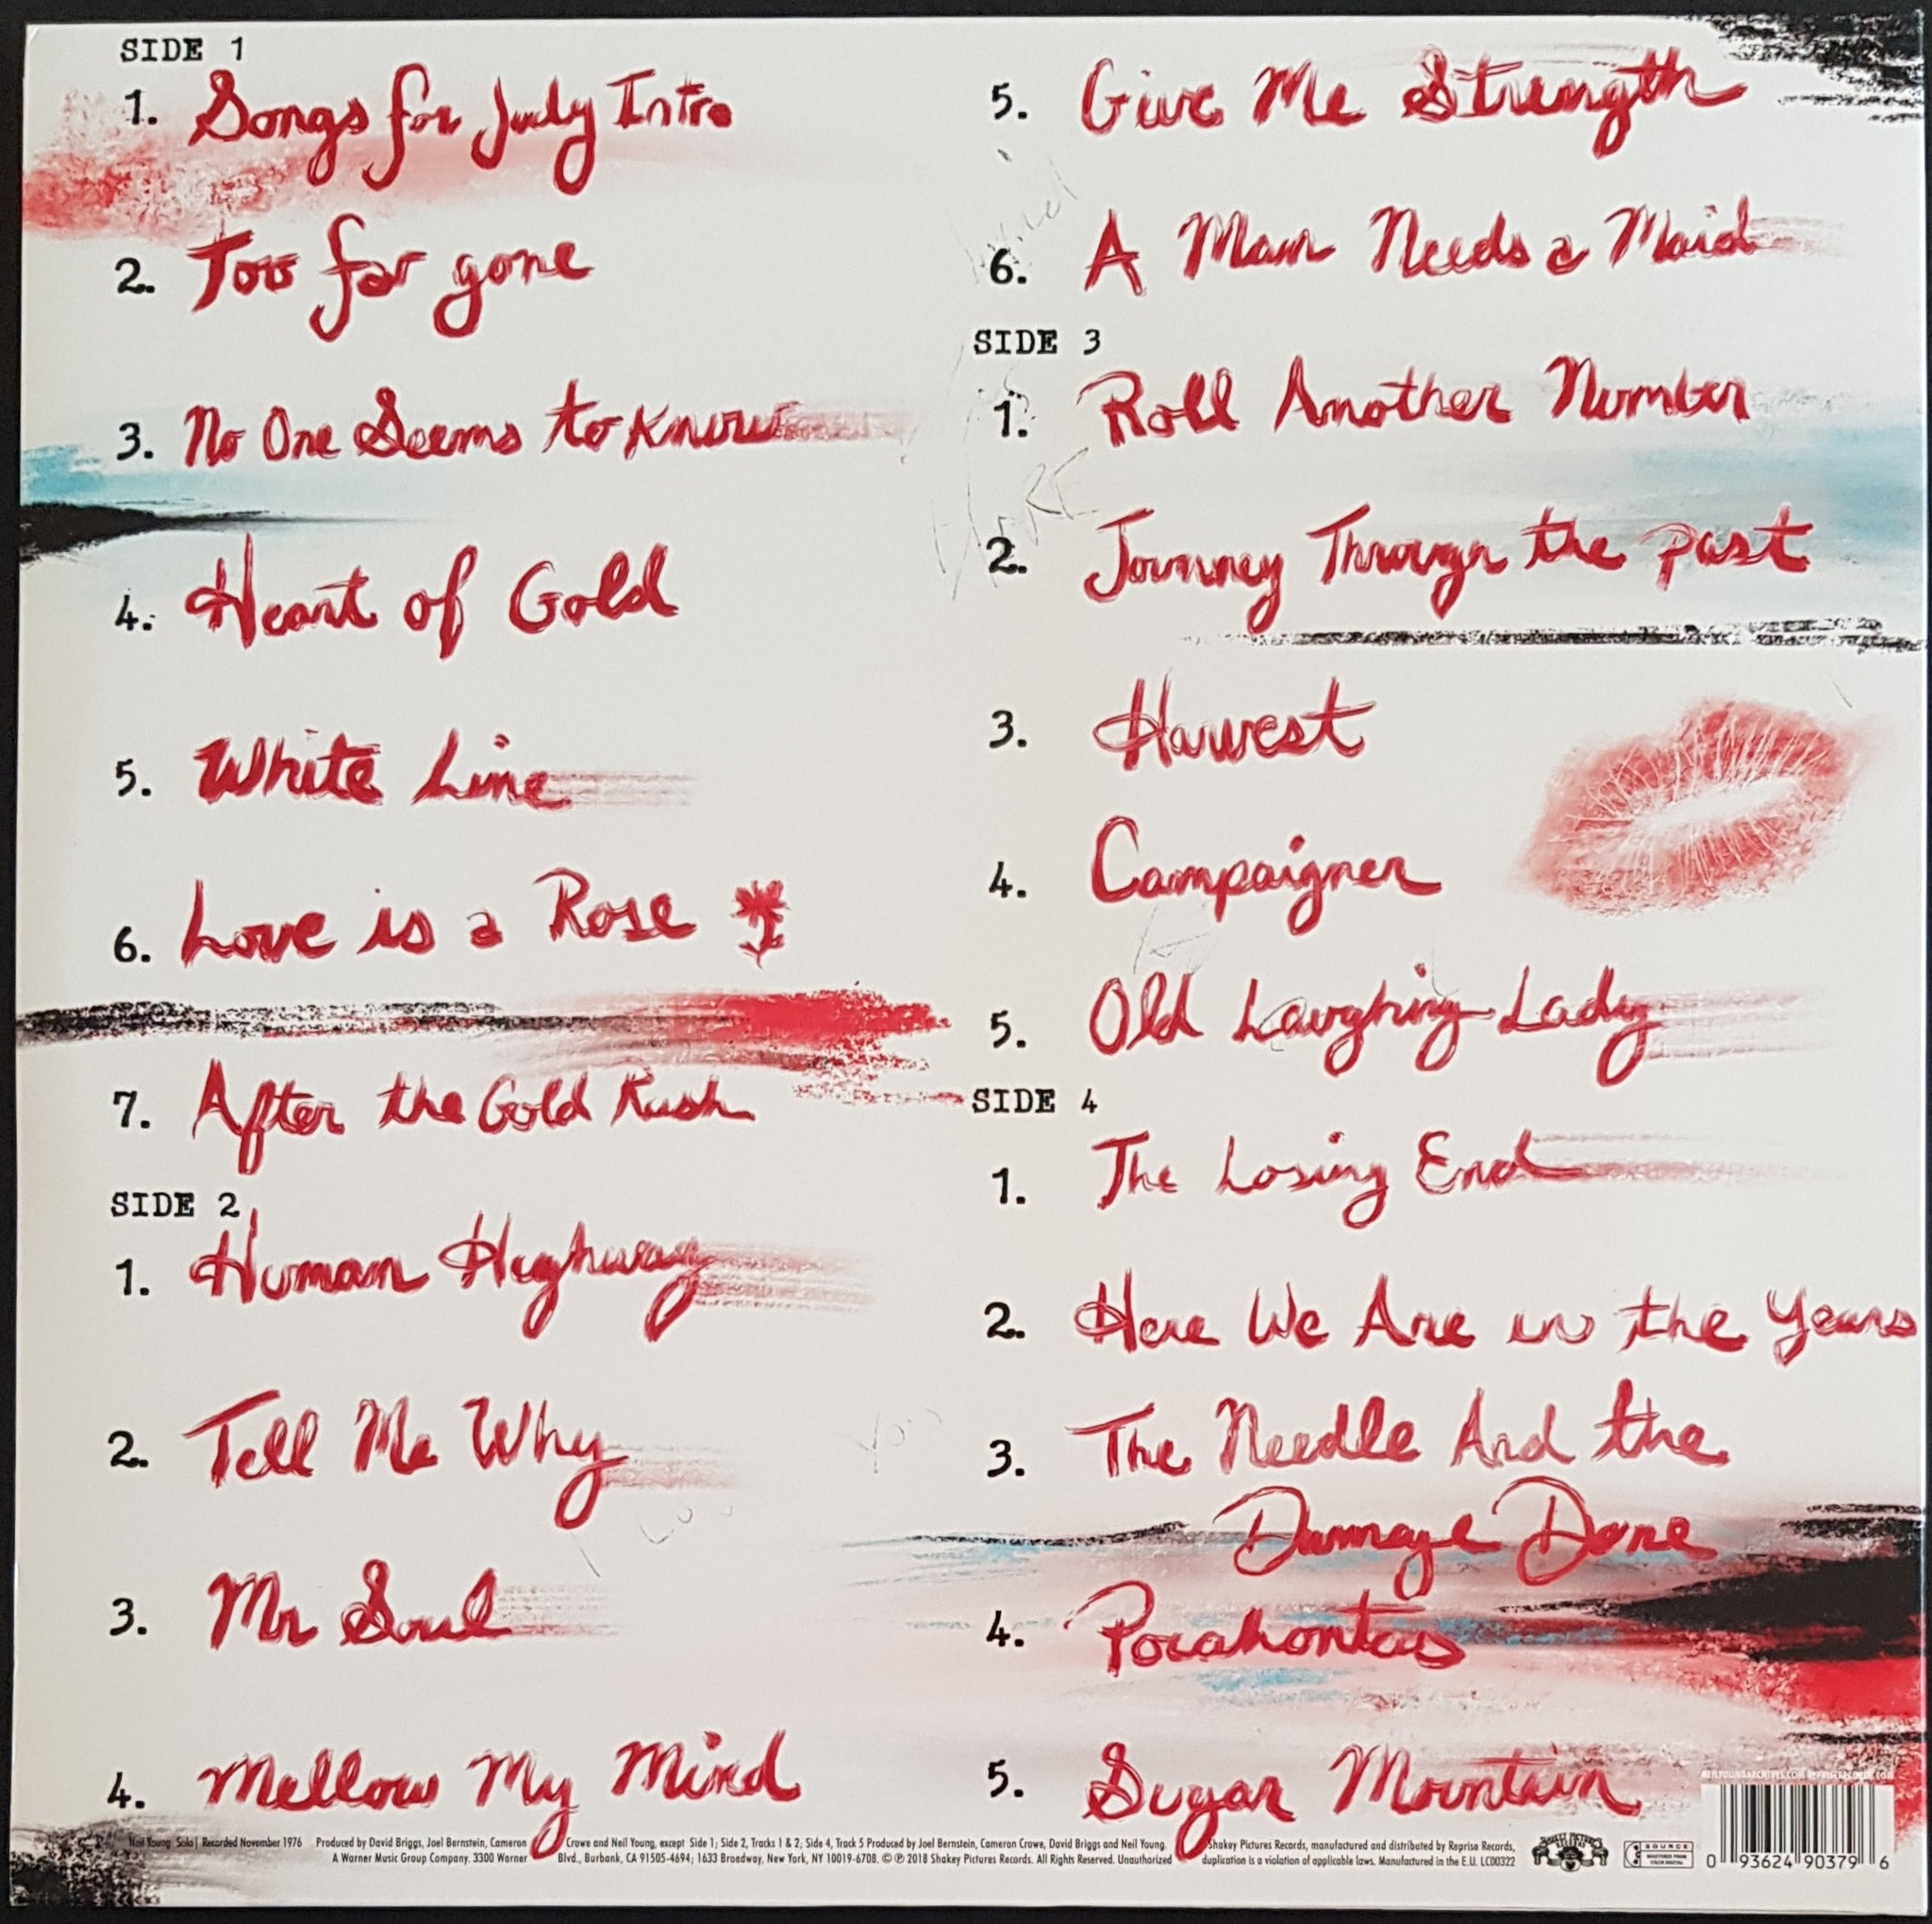 SIDE 1
1. Songs for July Intro
2. Too far gone
3. No One Seems to Know
4. Heart of Gold
5. White Line
6. Love is a Rose
7. After the Gold Rush
SIDE 2
1. Human Highway
2. Tell Me Why
3. Mr Soul
4. Mellow My Mind
5. Give Me Strength
6. A Man Needs a Maid
SIDE 3
1. Roll Another Number
2. Journey Through the past
3. Harvest
4. Campaigner
5. Old Laughing Lady
SIDE 4
1. The Losing End
2. Here We Are in the Years
3. The Needle And the
Damage Done
4. Pocahontas
5. Sugar Mountain
NEILYOUNGARCHIVES.COM REPRISERECORDS.COM
Neil Young Solo | Recorded November 1976 Produced by David Briggs, Joel Bernstein, Cameron Crowe and Neil Young, except Side 1; Side 2, Tracks 1 & 2; Side 4, Track 5 Produced by Joel Bernstein, Cameron Crowe, David Briggs and Neil Young. Shakey Pictures Records, manufactured and distributed by Reprise Records,
A Warner Music Group Company. 3300 Warner Blvd., Burbank, CA 91505-4694; 1633 Broadway, New York, NY 10019-6708. © ℗ 2018 Shakey Pictures Records. All Rights Reserved. Unauthorized duplication is a violation of applicable laws. Manufactured in the E.U. LC00322
SOURCE
0 93624 90379 6